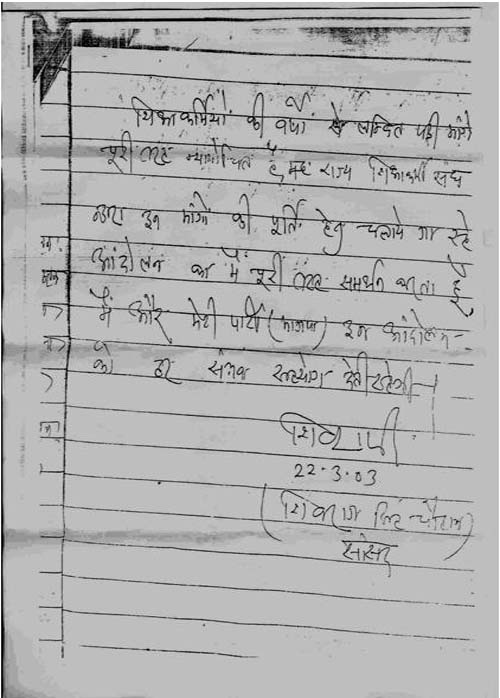 शिक्षाकर्मियों की वर्षो से लम्बित पड़ी मांगे
पूरी तरह न्यायोचित है, यह राज्य शिक्षाकर्मी संघ
द्वारा इन मांगों की पूर्ति हेतु चलाये जा रहे
आंदोलन का मैं पूरी तरह समर्थन करता हूँ
मैं और मेरी पार्टी (भाजपा) इन आंदोलन
को हर संभव सहयोग देती रहेगी।
शिवराज
22.3.03
(शिवराज सिंह चौहान)
सांसद